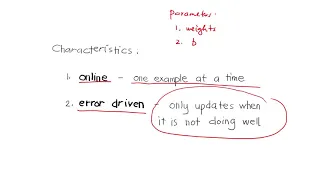 parameter:
1. weights
2. b
Characteristics:
1. online - one example at a time
2. error driven - only updates when
it is not doing well